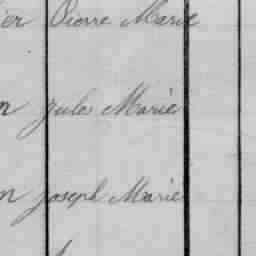 er Pierre Marie
n Jules Marie
n Joseph Marie